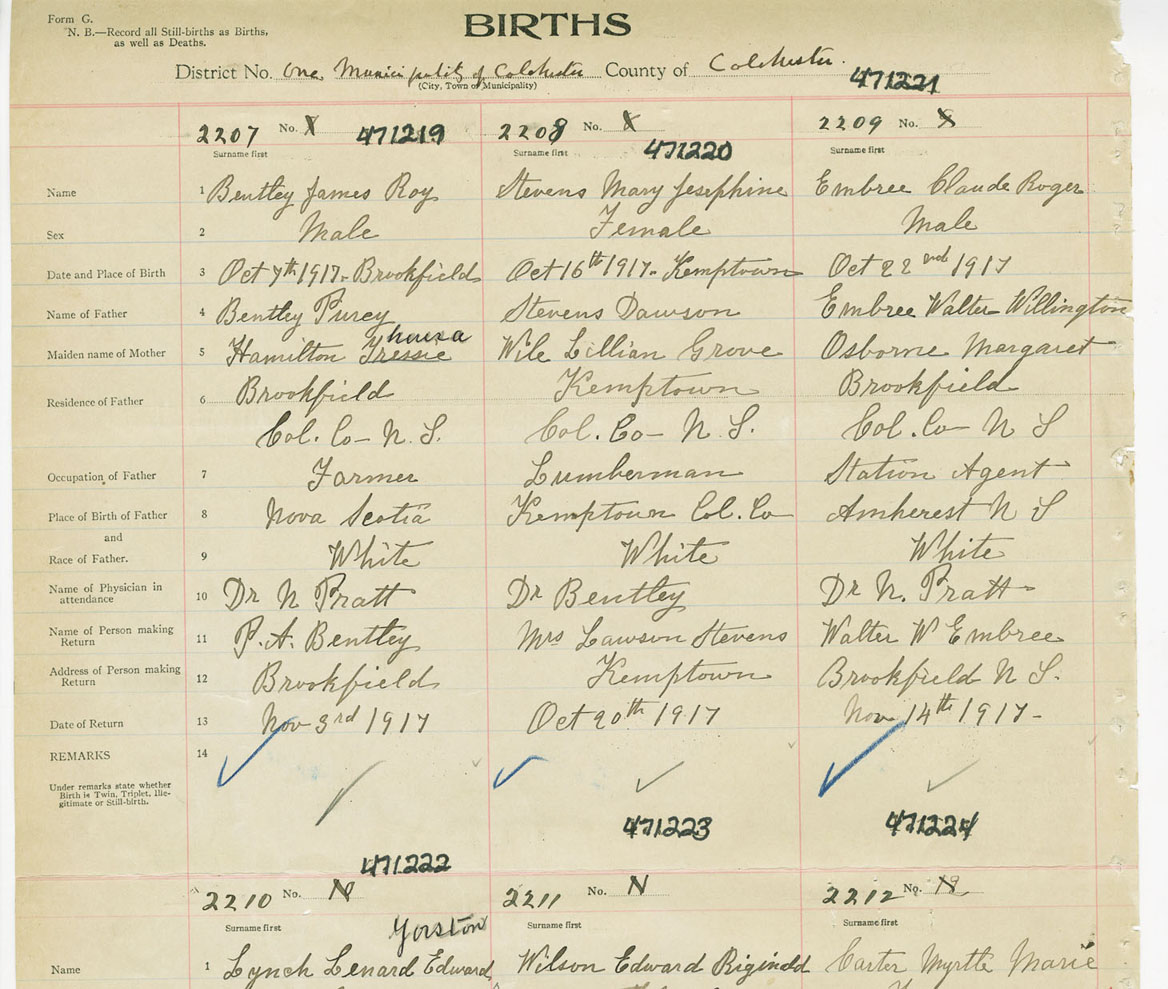 Form G.
N. B.—Record all Still-births as Births,
as well as Deaths.
BIRTHS
District No. One, Municipality of Colchester County of Colchester.
(City, Town or Municipality)
471221
2207 No. X 471219 2208 No. X 2209 No. X
Surname first Surname first 471220 Surname first
Name 1 Bentley James Roy Stevens Mary Josephine Embree Claude Roger
Sex 2 Male Female Male
Date and Place of Birth 3 Oct 7th 1917- Brookfield Oct 16th 1917- Kemptown Oct 22nd 1917
Name of Father 4 Bentley Purey Stevens Dawson Embree Walter Willington
Maiden name of Mother 5 Hamilton Tressie Wile Lillian Grove Osborne Margaret
Residence of Father 6 Brookfield Kemptown Brookfield
Col. Co- N. S. Col. Co- N. S. Col. Co- N S
Occupation of Father 7 Farmer Lumberman Station Agent
Place of Birth of Father 8 Nova Scotia Kemptown Col. Co Amherest N S
and
Race of Father. 9 White White White
Name of Physician in
attendance 10 Dr N Pratt Dr Bentley Dr N. Pratt
Name of Person making
Return 11 P. A. Bentley Mrs Lawson Stevens Walter W Embree
Address of Person making
Return 12 Brookfield Kemptown Brookfield N S.
Date of Return 13 Nov 3rd 1917 Oct 20th 1917 Nov 14th 1917-
REMARKS 14
Under remarks state whether
Birth is Twin, Triplet, Ille-
gitimate or Still-birth.
471223 471224
471222
2210 No. N 2211 No. N 2212 No.
Surname first Surname first Surname first
Yorston
Name 1 Lynch Lenard Edward Wilson Edward Riginald Carter Myrtle Marie